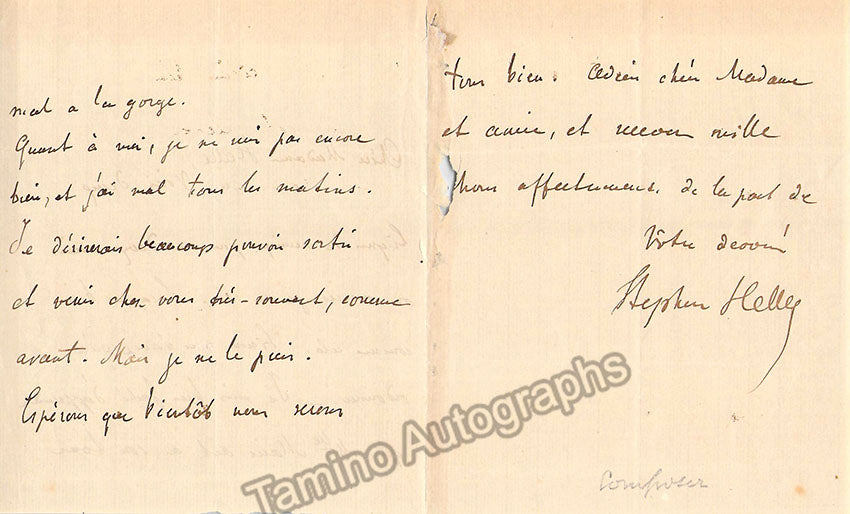 mal a la gorge.
Quant à moi, je ne suis pas encore
bien, et j'ai mal tous les matins.
Je désirerais beaucoup pouvoir sortir
et venir chez vous très-souvent, comme
avant. Mais je ne le puis.
Espérons que bientôt nous serons
tous bien. Adieu chère Madame
et amie, et recevez mille
choses affectueuses de la part de
Votre dévoué
Stephen Heller
composer
Tamino Autographs